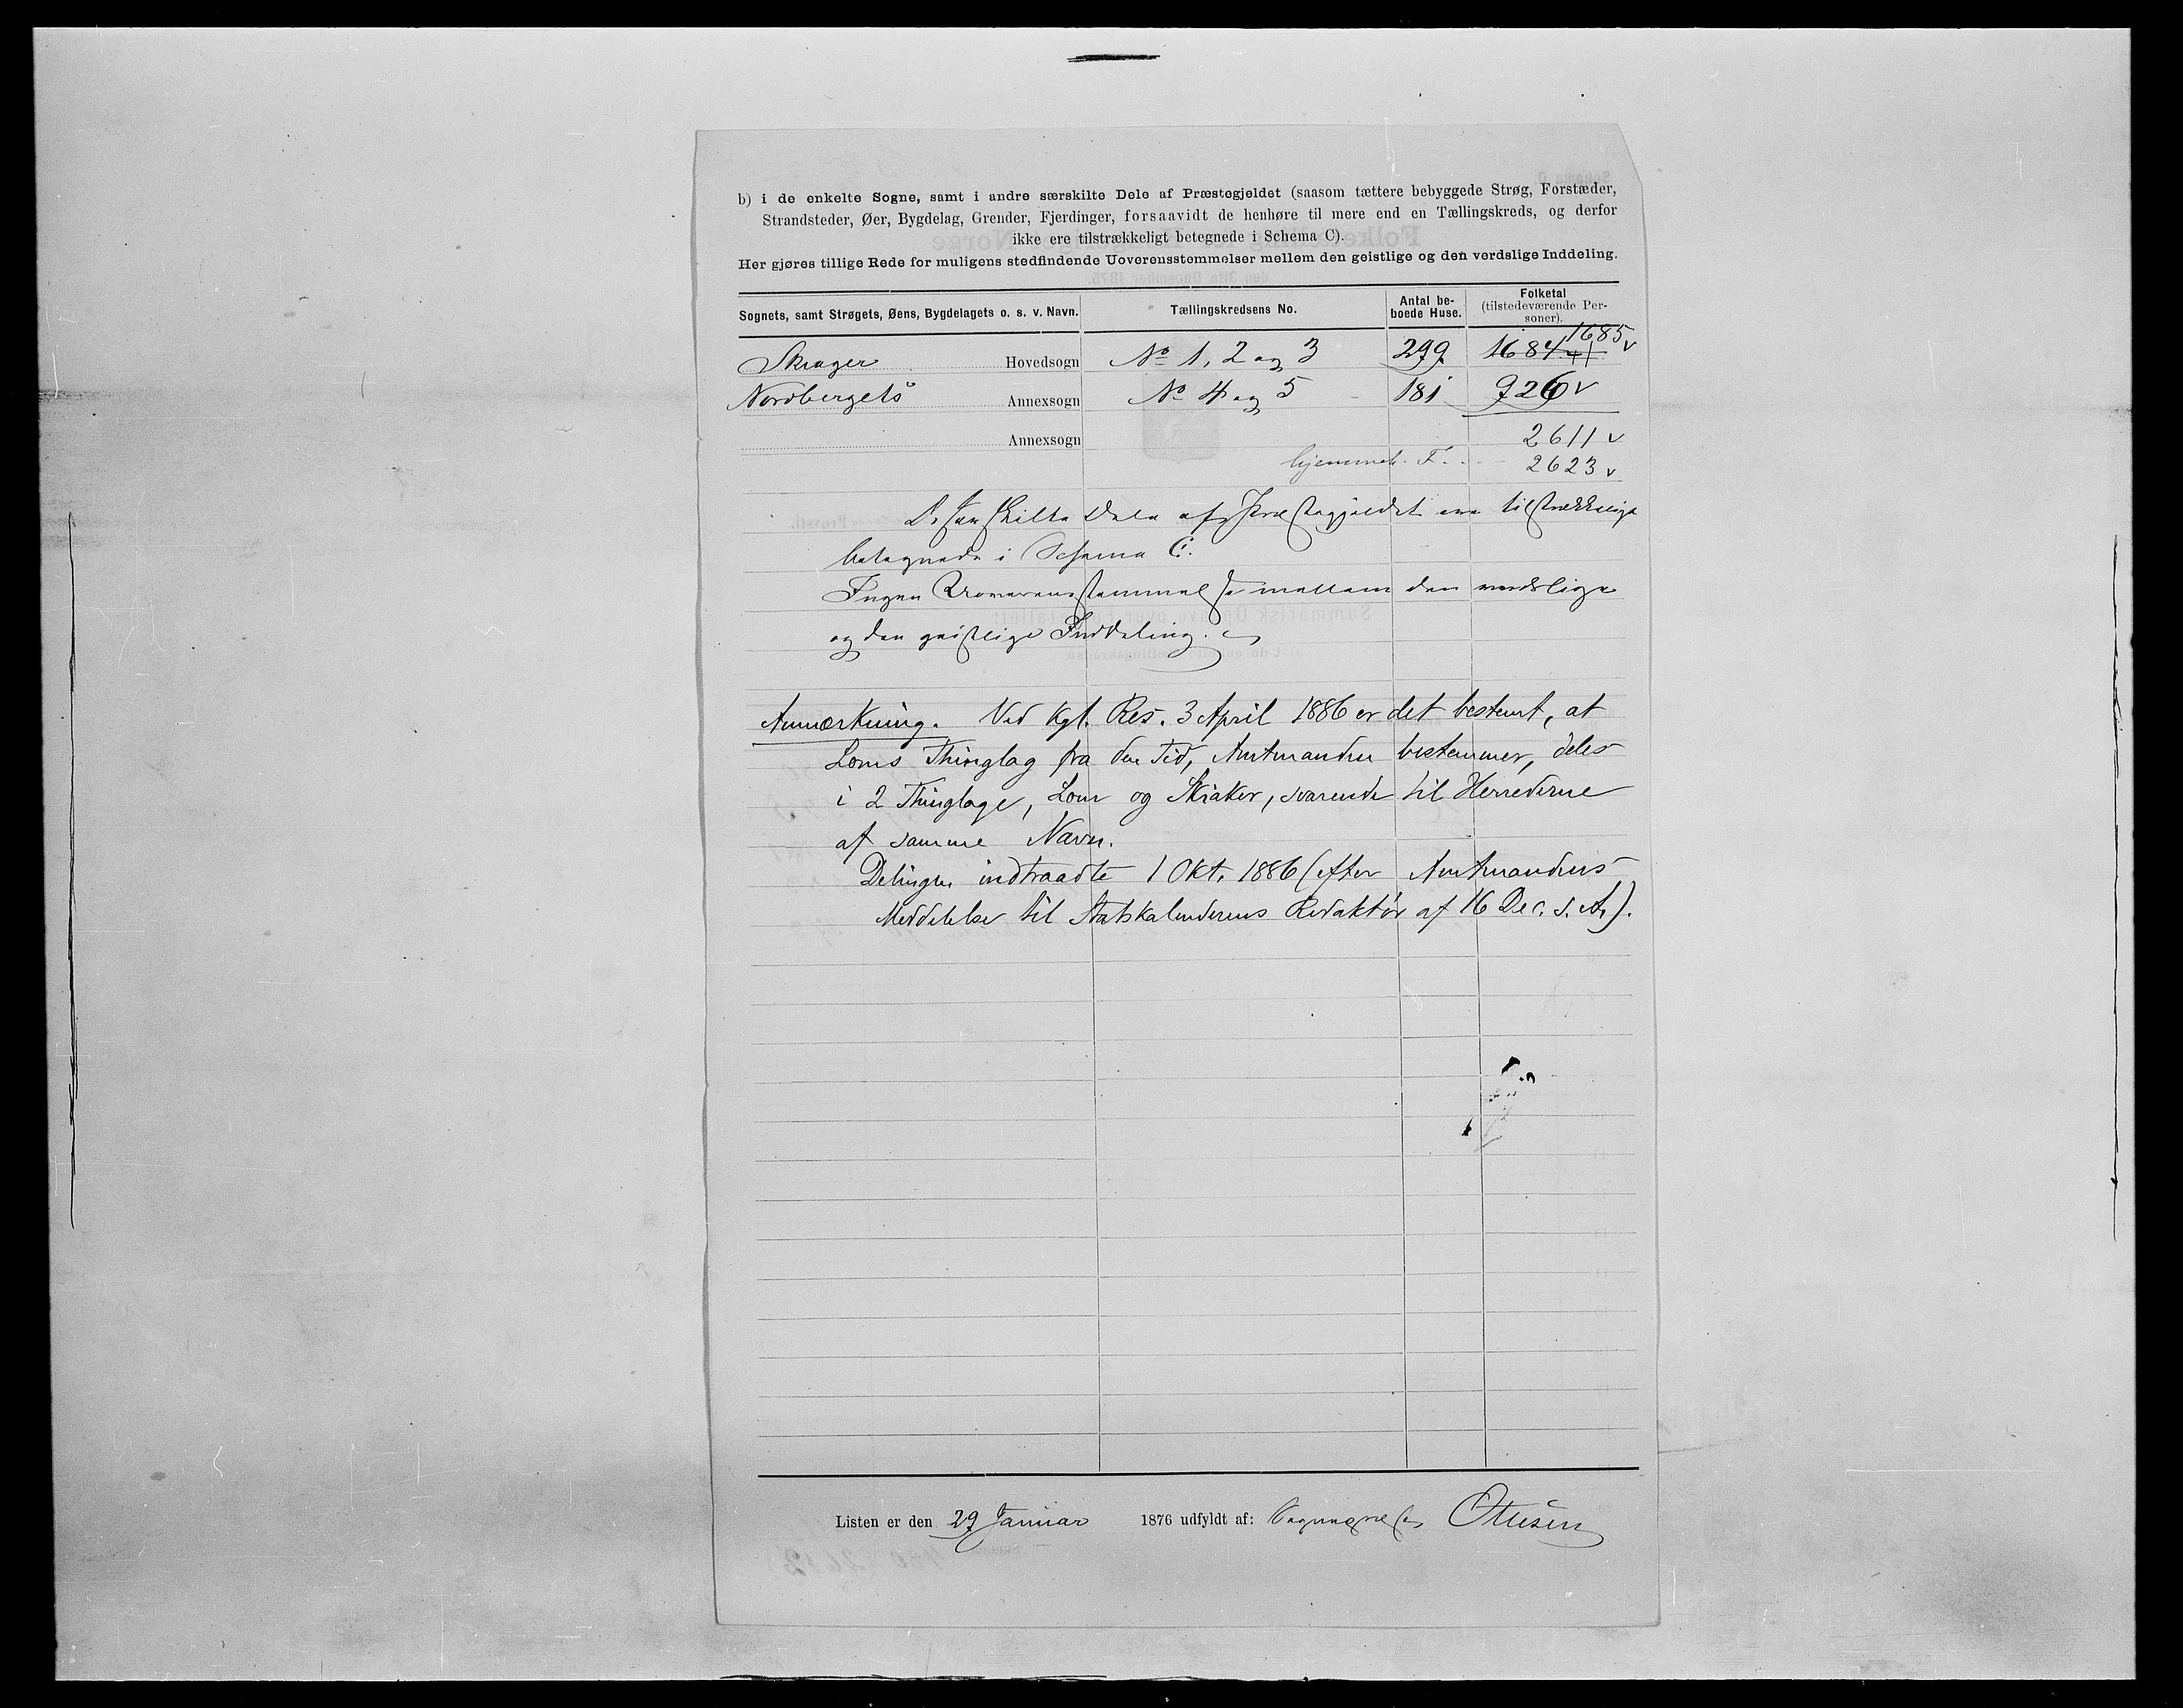 b) i de enkelte Sogne, samt i andre særskilte Dele af Præstegjeldet (saasom tættere bebyggede Strøg, Forstæder,
Strandsteder, Øer, Bygdelag, Grender, Fjerdinger, forsaavidt de henhøre til mere end en Tællingskreds, og derfor
ikke ere tilstrækkeligt betegnede i Schema C).
Her gjøres tillige Rede for muligens stedfindende Uoverensstemmelser mellem den geistlige og den verdslige Inddeling.
Sognets, samt Strøgets, Øens, Bygdelagets o. s. v. Navn. Tællingskredsens No. Antal be-boede Huse. Folketal (tilstedeværende Per-soner).
1685 v
Skiager Hovedsogn No 1, 2 og 3 299 1684
Nordbergets Annexsogn No 4 og 5 181 926 v
Annexsogn 2611 v
hjemmeh. F. 2623 v
De særskilte Dele af Præstegjeldet ere tilstrækkeligt
betegnede i Schema C.
Ingen Uoverensstemmelse mellem den verdslige
og den geistlige Inddeling.
Anmærkning. Ved kgl. Res. 3 April 1886 er det bestemt, at
Loms Thinglag fra den Tid, Amtmanden bestemmer, deles
i 2 Thinglage, Lom og Skiaker, svarende til Herrederne
af samme Navn.
Delingen indtraadte 1 Okt. 1886 (efter Amtmandens
Meddelelse til Statskalenderens Redaktør af 16 Dec. s. A.).
Listen er den 29 Januar 1876 udfyldt af: Sognepræst Ottesen